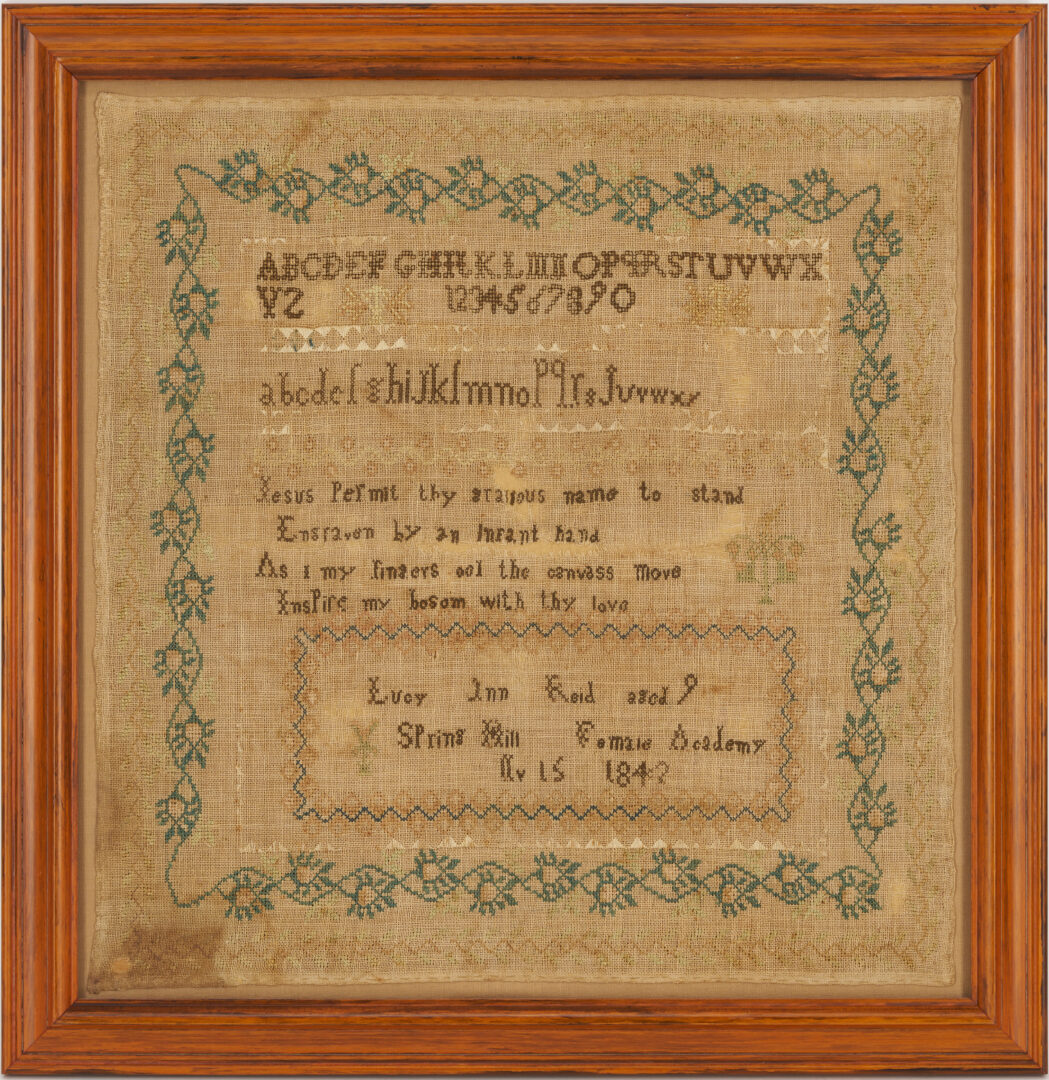 ABCDEFGHIKLMNOPQRSTUVWX
YZ 1234567890
abcdefghijklmnopqrsſuvwxy
Jesus Permit thy gracious name to stand
Engraven by an Infant hand
As i my fingers oel the canvass move
Inspire my bosom with thy love
Lucy Ann Reid aged 9
Spring Hill Female Academy
Nv 15 1842